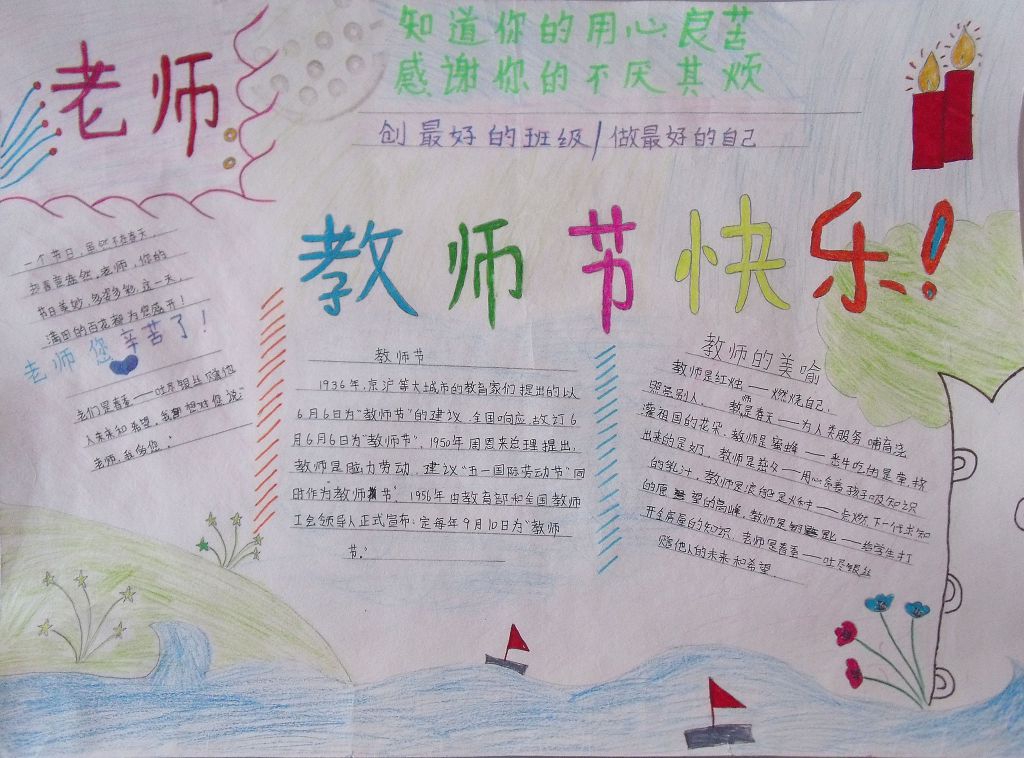 老师
知道你的用心良苦
感谢你的不厌其烦
创最好的班级/做最好的自己
教师节快乐!
一个节日,虽然不在春天,
却春意盎然,老师,你的
节日美妙,多姿多彩,这一天,
满园的百花都为您盛开!
老师您辛苦了!
老师是春蚕——吐尽银丝
人未来和希望,我想对您说:"
老师,我
教师节
1936年,京沪等大城市的教育家们提出的以
6月6日为"教师节"的建议,全国响应,故订6
月6月6日为"教师节",1950年周恩来总理提出,
教师是脑力劳动,建议"五一国际劳动节"同
时作为"教师节",1956年由教育部和全国教师
工会领导人正式宣布:定每年9月10日为"教师
节。"
教师的美喻
教师是红烛——燃烧自己,
照亮别人,教师是春天——为人类服务,哺育浇
灌祖国的花朵,教师是蜜蜂——老牛吃的是草,挤
出来的是奶,教师是慈父——用心 养孩子吸知识
的乳汁,教师是 火种——点燃下一代求知
的原 望的高峰,教师是钥匙——给学生打
开金房屋的知识,老师是春蚕——吐尽银丝
随他人的未来和希望。